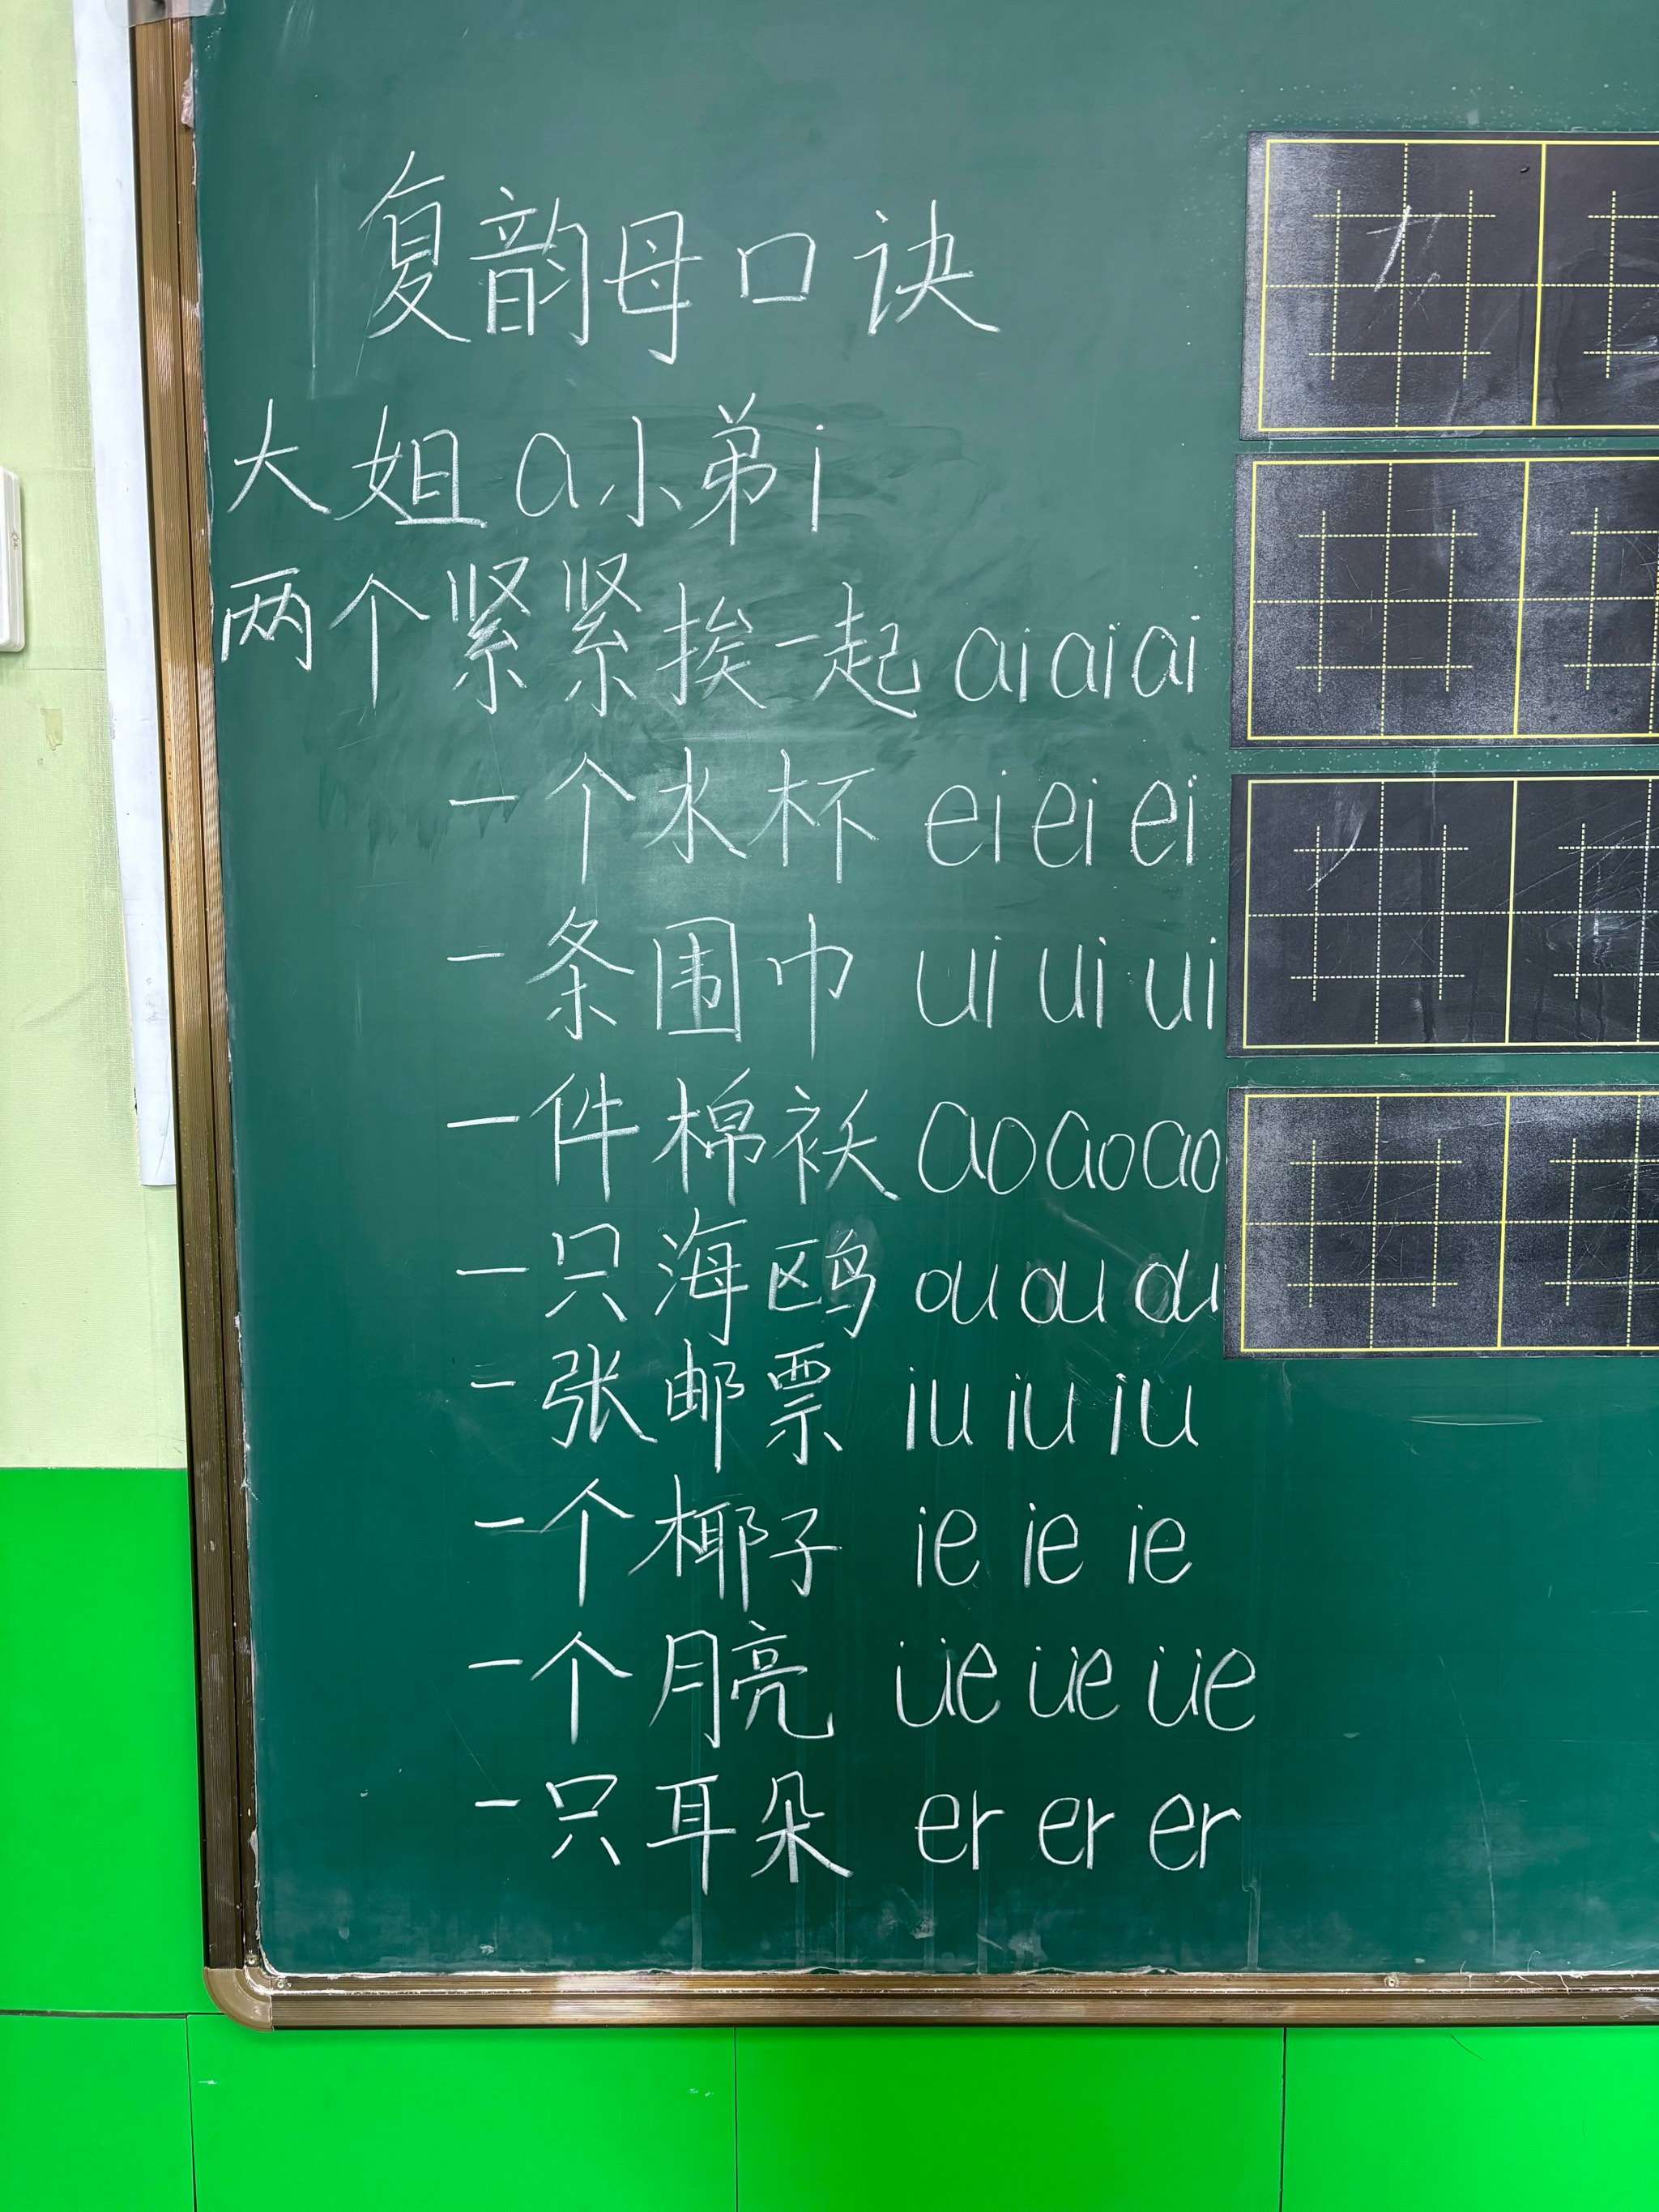 复韵母口诀
大姐a小弟i
两个紧紧挨一起 ai ai ai
一个水杯 ei ei ei
一条围巾 ui ui ui
一件棉袄 ao ao ao
一只海鸥 ou ou ou
一张邮票 iu iu iu
一个椰子 ie ie ie
一个月亮 üe üe üe
一只耳朵 er er er